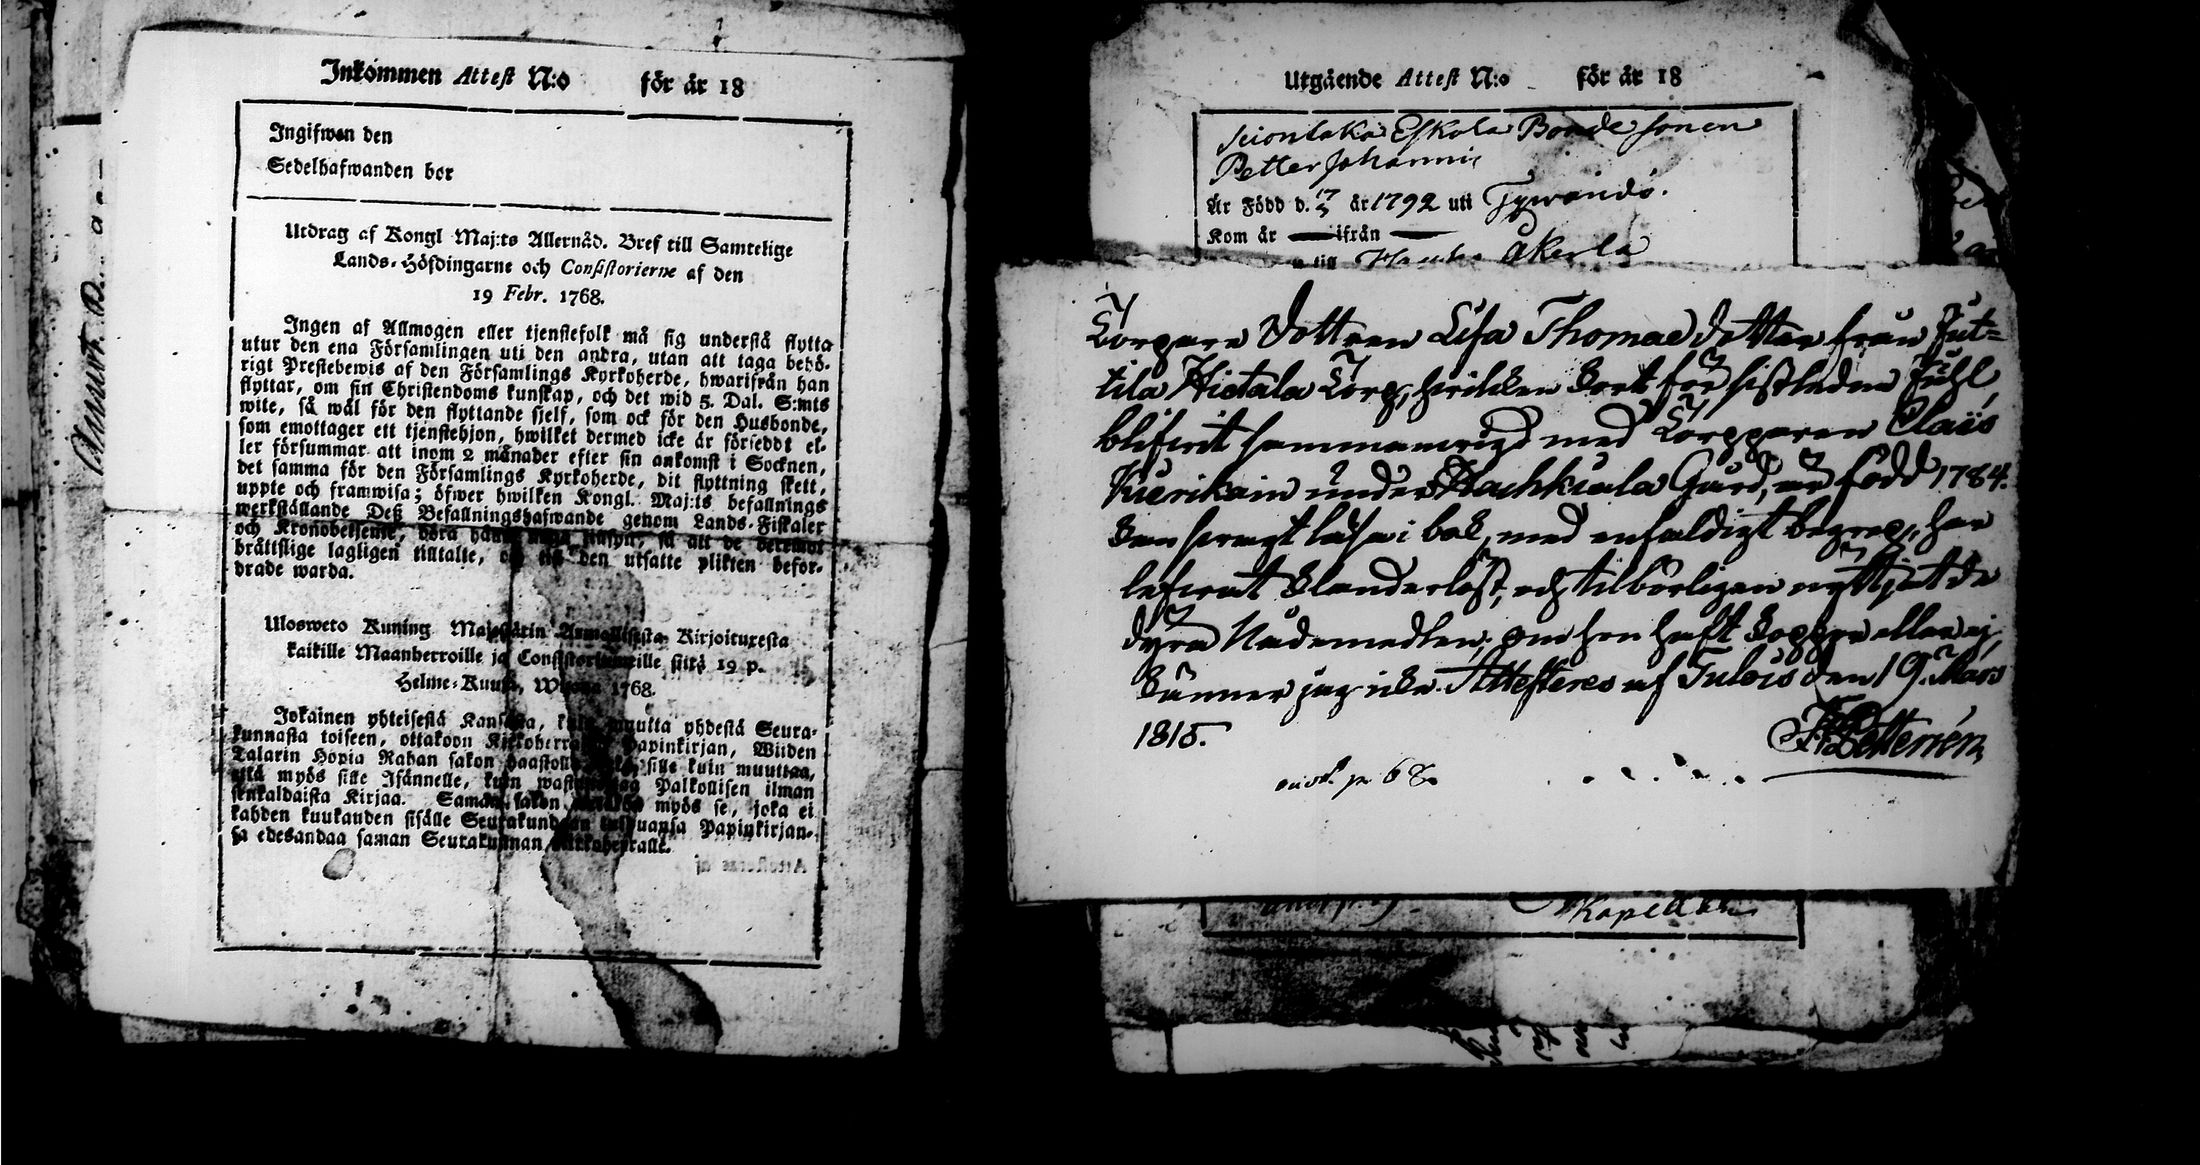 Inkommen Attest N:o för år 18
Ingifwen den
Sedelhafwanden bor
Utdrag af Kongl Maj:ts Allernåd. Bref till Samtelige
Lands-Höfdingarne och Consistorierne af den
19 Febr. 1768.
Ingen af Allmogen eller tjenstefolk må sig understå flytta
utur den ena Församlingen uti den andra, utan att taga behö-
rigt Prestebewis af den Församlings Kyrkoherde, hwarifrån han
flyttar, om sin Christendoms kunskap, och det wid 5. Dal. S:mts
wite, så wäl för den flyttande sjelf, som ock för den Husbonde,
som emottager ett tjenstehjon, hwilket dermed icke är försedt el-
ler försummar att inom 2 månader efter sin ankomst i Socknen,
det samma för den Församlings Kyrkoherde, dit flyttning skett,
uppte och framwisa; öfwer hwilken Kongl. Maj:ts befallnings
werkställande Deß Befallningshafwande genom Lands-Fiskaler
och Kronobetjente, böra hafwa noga så att de
bråttslige lagligen tilltalte, och till den utsatte plikten befor-
drade warda.
Ulosweto Kuning Majestätin Armollisesta Kirjoituxesta
kaikille Maanherroille ja Consistoriumeille siitä 19 p.
Helme-Kuusa, Wuonna 1768.
Jokainen yhteisestä Kansasta, kuin muutta yhdestä Seura-
kunnasta toiseen, ottakoon Kirkoherralda Papinkirjan, Wiiden
Talarin Hopia Rahan sakon haastolla, sekä sille kuin muuttaa,
että myös sille Isännelle, kuin wastanottaa Palkollisen ilman
senkaldaista Kirjaa. Saman sakon myös se, joka ei
kahden kuukauden sisälle Seurakundaan tulduansa Papinkirjan-
sa edesandaa saman Seurakunnan Kirkoherralle.
Attesteras af
Utgående Attest N:o för år 18
Eskola Bondesonen
Petter Johannis
Är Född d. 17/5 år 1792 uti Tyrwändö.
Kom år — ifrån —
till Åkerla
Torpare Dottren Lisa Thomae dotter från Jut-
tila Hietala Torp, hvilken kort för sistleden Juhl
blifvit sammanvigd med Torpparen Claës
under Gård, är född 1784.
kan svagt läsa i bok, med enfaldigt begrep, har
lefvat klanderlöst, och tilbörligen nyttjat de
dyra Nådemedlen; om hon haft koppor eller ej,
känner jag icke. Attesteres af Tulois den 19. Mars
1815.
p. 68.
Kapellan